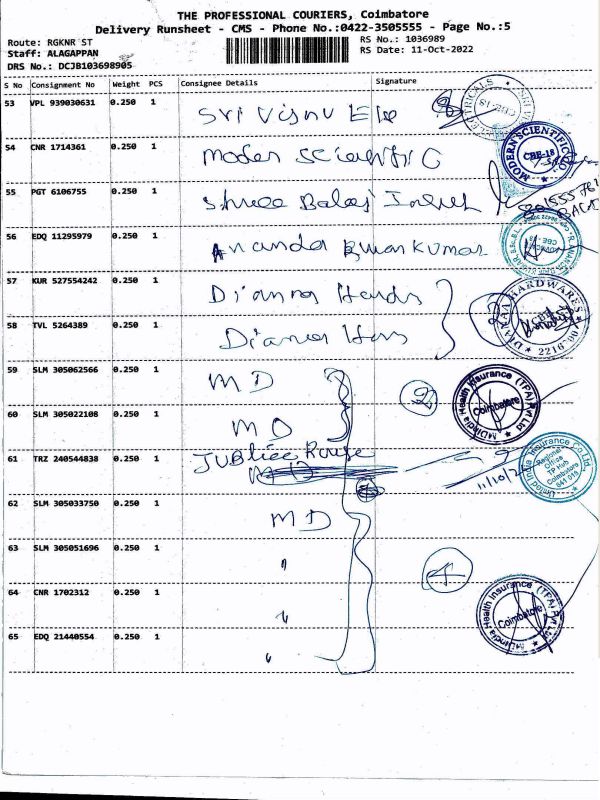 THE PROFESSIONAL COURIERS, Coimbatore
Delivery Runsheet - CMS - Phone No.:0422-3505555 - Page No.:5
Route: RGKNR ST
RS No.: 1036989
Staff: ALAGAPPAN
RS Date: 11-Oct-2022
DRS No.: DCJB103698905
S No Consignment No Weight PCS Consignee Details Signature
53 VPL 939030631 0.250 1 Sri Visnu Ele
54 CNR 1714361 0.250 1 Moder Scientific
MODERN SCIENTIFIC CO CBE-18
55 PGT 6106755 0.250 1 Shree Balaj
56 EDQ 11295979 0.250 1 Ananda Kumar
57 KUR 527554242 0.250 1 Dianna
58 TVL 5264389 0.250 1 Diana
2
HARDWARES
59 SLM 305062566 0.250 1 MD
2
MDIndia Health Insurance (TPA) Pvt Ltd Coimbatore
60 SLM 305022108 0.250 1 MD
61 TRZ 240544838 0.250 1 JUBliee Rouge
11/10/22
United India Insurance Co Ltd. Regional Office TP Hub Coimbatore 641 018
62 SLM 305033750 0.250 1 MD
63 SLM 305051696 0.250 1 "
4
64 CNR 1702312 0.250 1 "
MDIndia Health Insurance (TPA) Pvt Ltd Coimbatore
65 EDQ 21440554 0.250 1 "